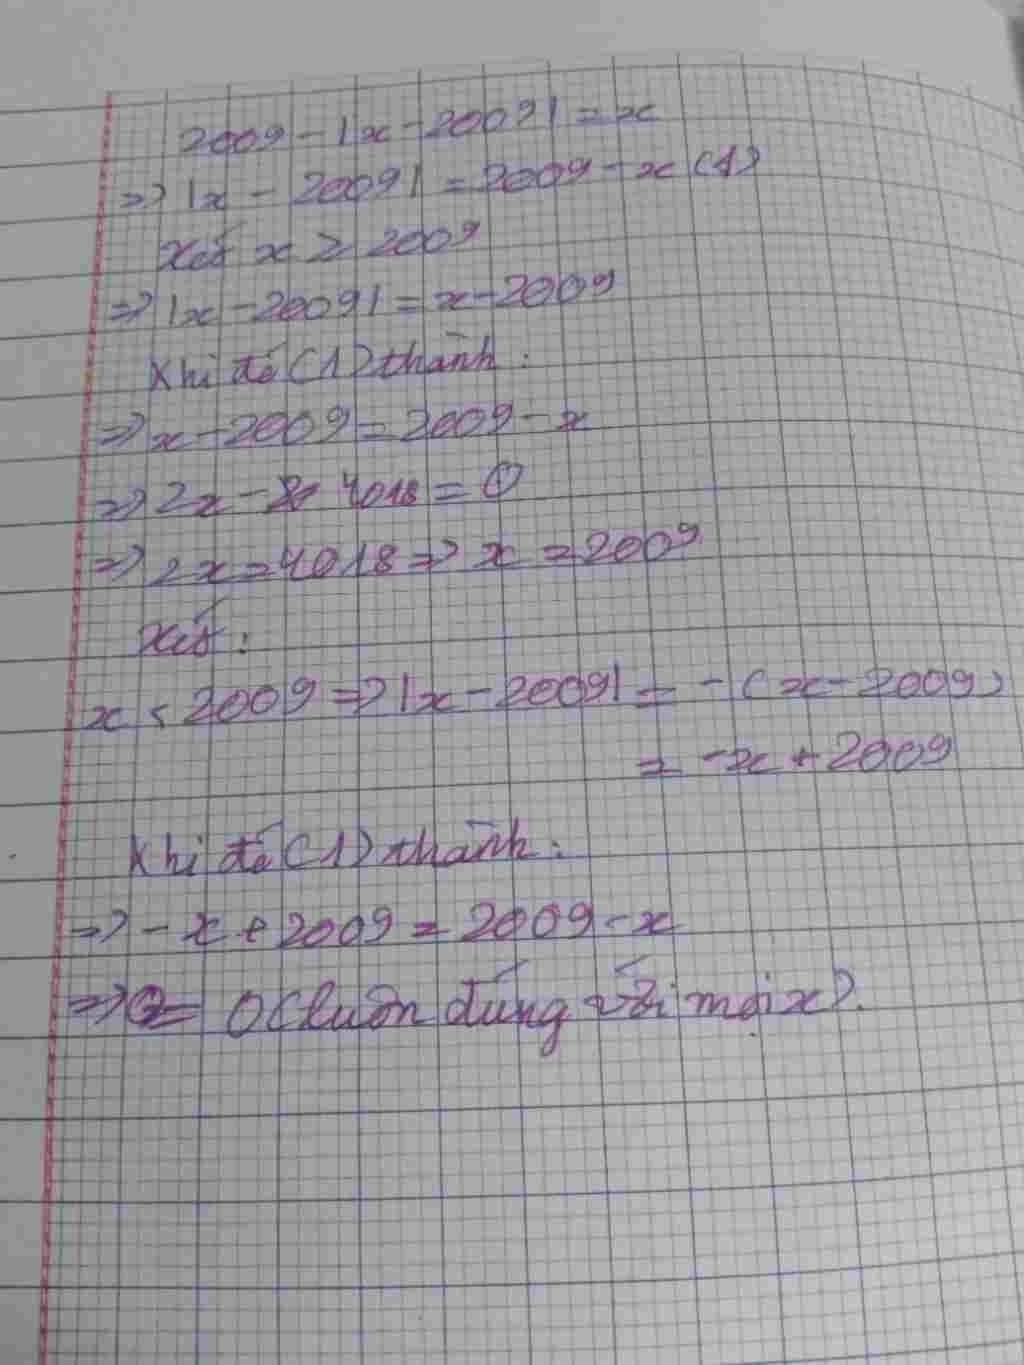 2009 - |x - 2009| = x
=> |x - 2009| = 2009 - x (1)
Xét x ≥ 2009
=> |x - 2009| = x - 2009
Khi đó (1) thành:
=> x - 2009 = 2009 - x
=> 2x - 4018 = 0
=> 2x = 4018 => x = 2009
Xét:
x < 2009 => |x - 2009| = - (x - 2009)
= -x + 2009
Khi đó (1) thành:
=> -x + 2009 = 2009 - x
=> 0 = 0 (luôn đúng với mọi x).